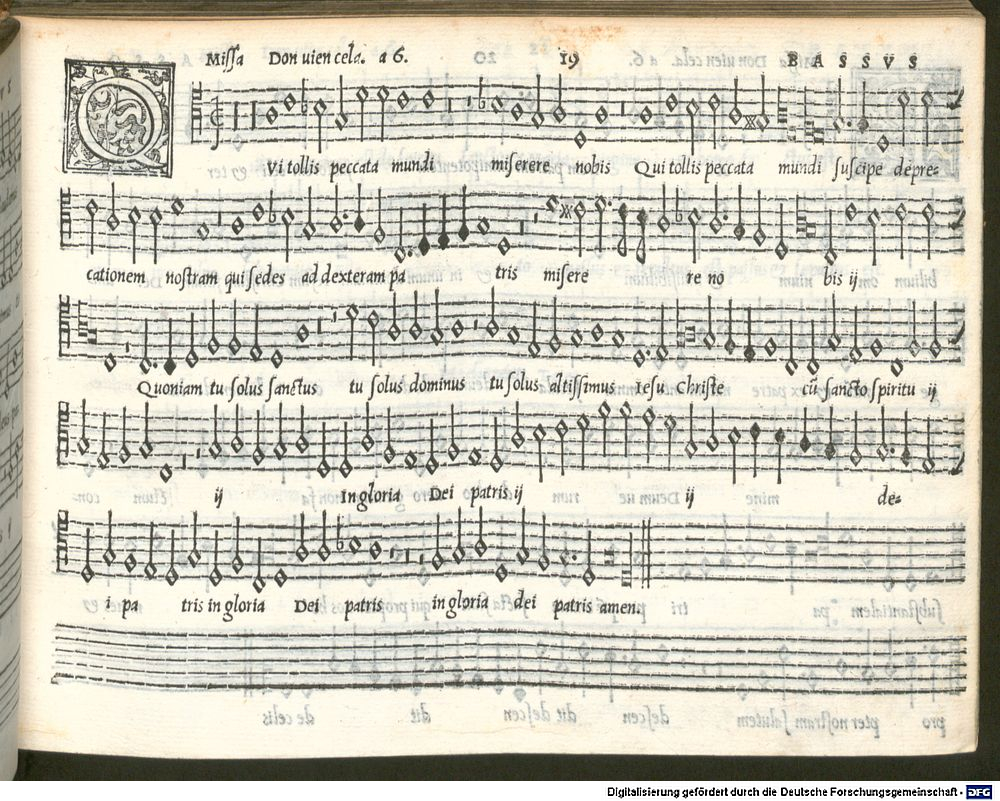 Missa Don uien cela. a 6. 19 BASSVS
QVi tollis peccata mundi miserere nobis Qui tollis peccata mundi suscipe depre-
cationem nostram qui sedes ad dexteram pa tris misere re no bis ij
Quoniam tu solus sanctus tu solus dominus tu solus altissimus Iesu Christe cū sancto spiritu ij
ij In gloria Dei patris ij ij de-
i pa tris in gloria Dei patris in gloria dei patris amen.
Digitalisierung gefördert durch die Deutsche Forschungsgemeinschaft - DFG